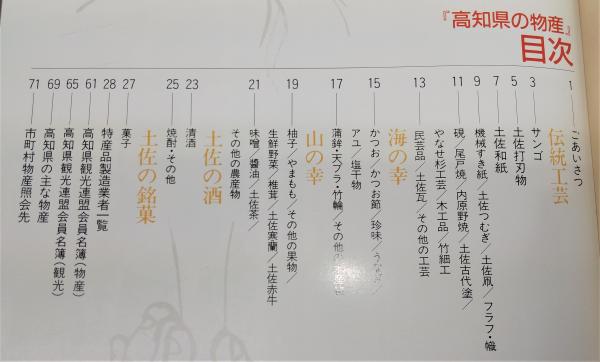 『高知県の物産』
目次
1 ごあいさつ
伝統工芸
3 サンゴ
5 土佐打刃物
7 土佐和紙
9 機械すき紙／土佐つむぎ／土佐凧／フラフ・幟
11 硯／尾戸焼／内原野焼／土佐古代塗／
やなせ杉工芸／木工品／竹細工
13 民芸品／土佐瓦／その他の工芸
海の幸
15 かつお／かつお節／珍味／うなぎ／
アユ／塩干物
17 蒲鉾・天プラ・竹輪／その他の水産物
山の幸
19 柚子／やまもも／その他の果物／
生鮮野菜／椎茸／土佐寒蘭／土佐赤牛
21 味噌／醤油／土佐茶／
その他の農産物
土佐の酒
23 清酒
25 焼酎・その他
土佐の銘菓
27 菓子
28 特産品製造業者一覧
61 高知県観光連盟会員名簿（物産）
65 高知県観光連盟会員名簿（観光）
69 高知県の主な物産
71 市町村物産照会先